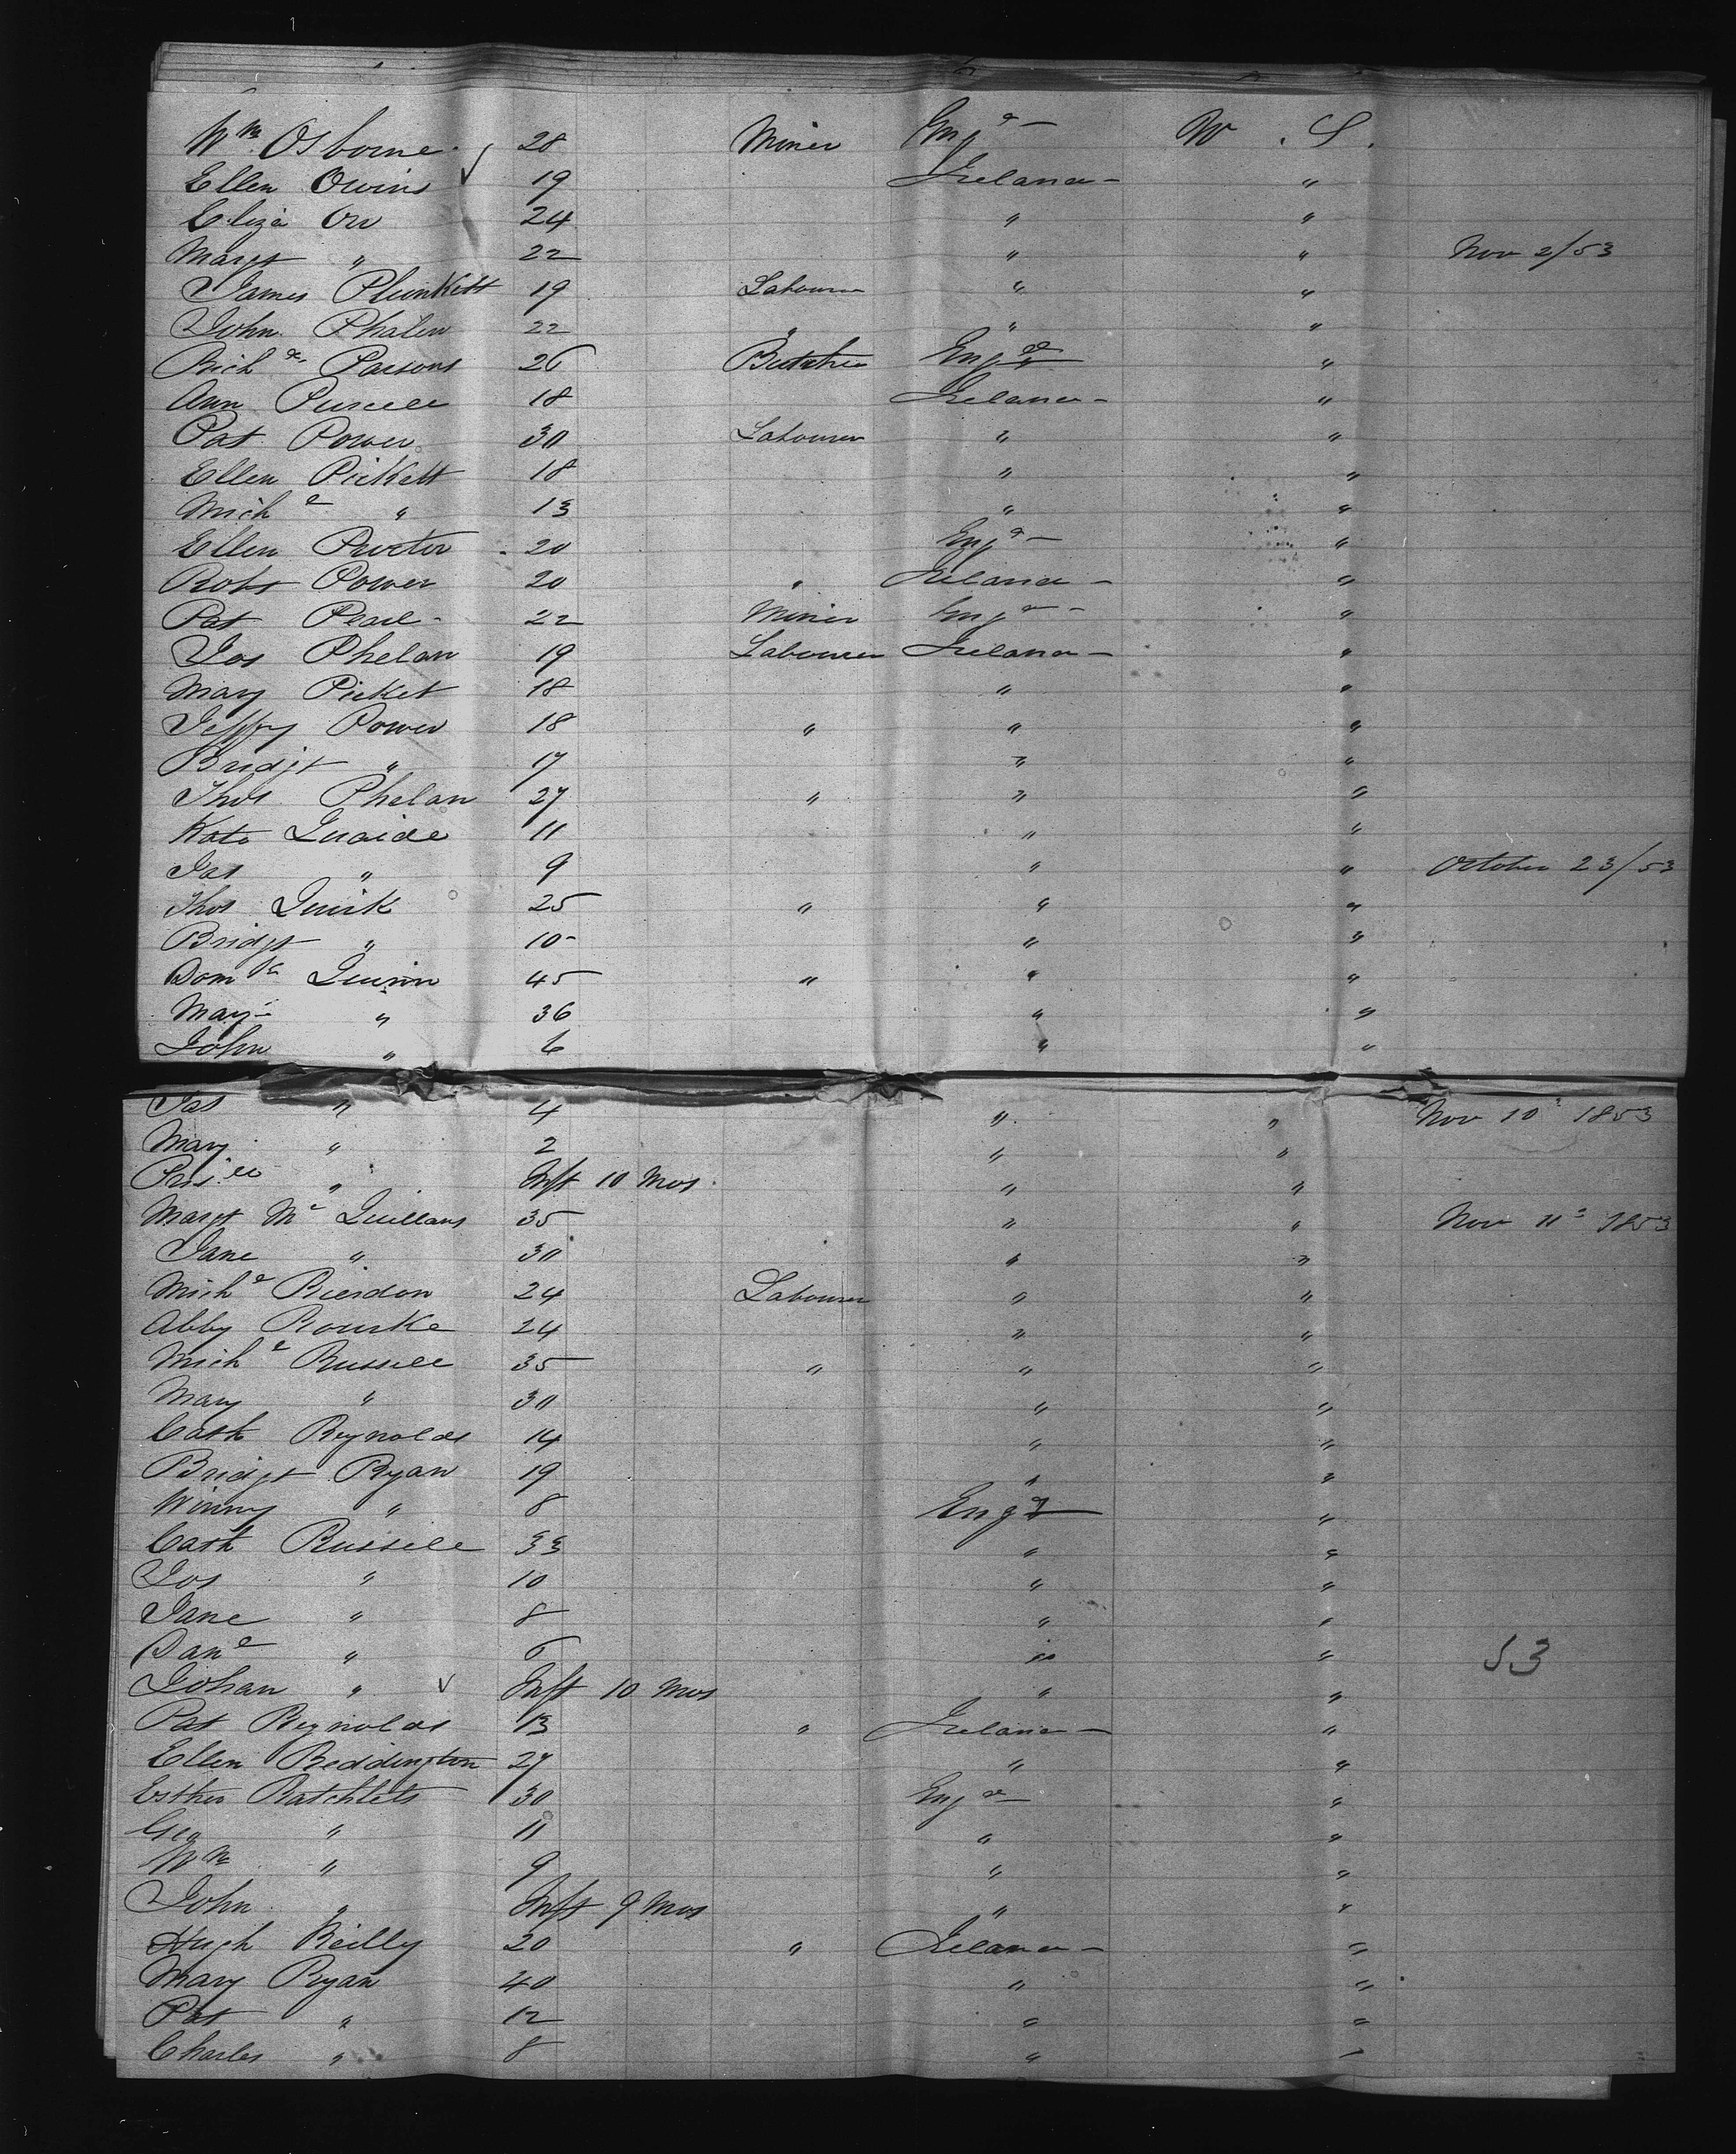 Wm Osborne 28 Miner Engd W. S.
Ellen Owins 19 Ireland "
Eliza Orr 24 " "
Margt " 22 " " Nov 2/53
James Plunkett 19 Labourer " "
John Phalen 22 " " "
Richd Parsons 26 Butcher Engd "
Ann Pursell 18 Ireland "
Pat Power 30 Labourer " "
Ellen Pickett 18 " "
Michl " 13 " "
Ellen Procter 20 Engd "
Robt Power 20 " Ireland "
Pat Pearl 22 Miner Engd "
Jos Phelan 19 Labourer Ireland "
Mary Picket 18 " "
Jeffry Power 18 " " "
Bridgt " 17 " "
Thos Phelan 27 " " "
Kate Quaide 11 " "
Jas " 9 " " October 23/53
Thos Quirk 25 " " "
Bridgt " 10 " "
Domk Quinn 45 " " "
Mary " 36 " "
John " 6 " "
Jas " 4 " " Nov 10 1853
Mary " 2 " "
" Inft 10 Mos " "
Margt Mc Quillans 35 " " Nov 11 1853
Jane " 30 " "
Michl Rierdon 24 Labourer " "
Abby Rourke 24 " "
Michl Russell 35 " " "
Mary " 30 " "
Cath Reynolds 14 " "
Bridgt Ryan 19 " "
Winny " 8 Engd "
Cath Russell 33 " "
Jos " 10 " "
Jane " 8 " "
Danl " 6 " " 53
Johan " Inft 10 Mos " "
Pat Reynolds 13 " Ireland "
Ellen Reddington 27 " "
Esther Ratchlets 30 Engd "
Geo " 11 " "
Wm " 9 " "
John " Inft 9 Mos " "
Hugh Reilly 20 " Ireland "
Mary Ryan 40 " "
Pat " 12 " "
Charles " 8 " "